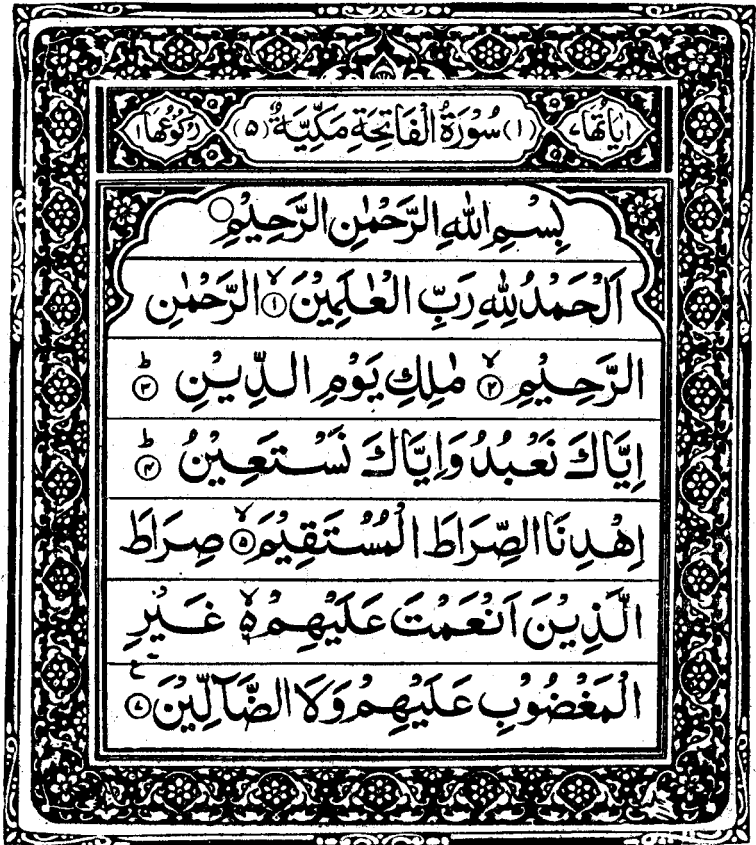 اٰیَاتُهَا ٧ (١) سُوْرَةُ الْفَاتِحَةِ مَكِّیَّةٌ (٥) رُكُوْعُهَا ١
بِسْمِ اللهِ الرَّحْمٰنِ الرَّحِیْمِ ○
اَلْحَمْدُ لِلّٰهِ رَبِّ الْعٰلَمِیْنَ ۙ﴿١﴾ الرَّحْمٰنِ
الرَّحِیْمِ ۙ﴿٢﴾ مٰلِكِ یَوْمِ الدِّیْنِ ؕ﴿٣﴾
اِیَّاكَ نَعْبُدُ وَاِیَّاكَ نَسْتَعِیْنُ ؕ﴿٤﴾
اِهْدِنَا الصِّرَاطَ الْمُسْتَقِیْمَ ۙ﴿٥﴾ صِرَاطَ
الَّذِیْنَ اَنْعَمْتَ عَلَیْهِمْ ۙ۬ۙ غَیْرِ
الْمَغْضُوْبِ عَلَیْهِمْ وَلَا الضَّآلِّیْنَ ﴿٧﴾ ع